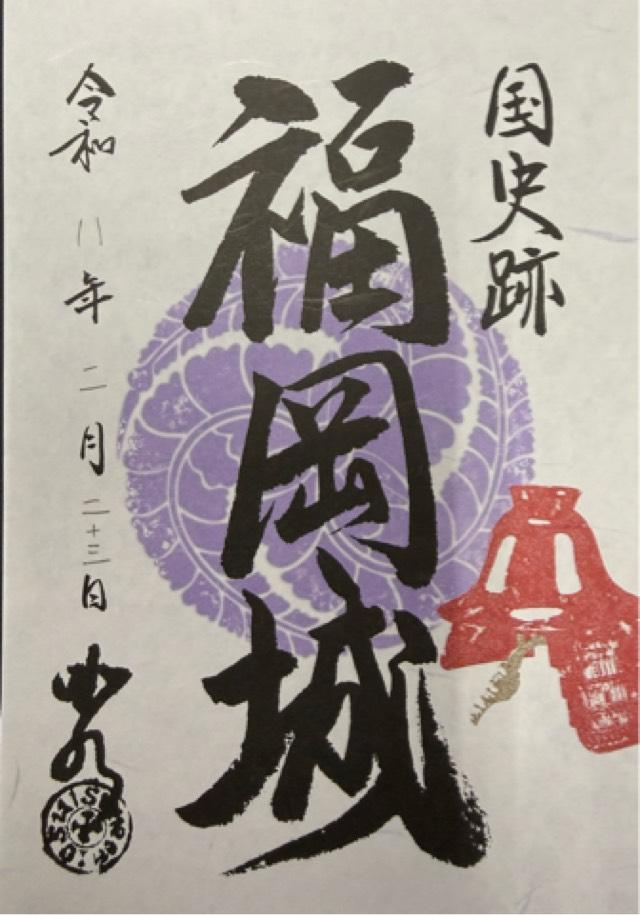 国史跡
福岡城
令和八年二月二十三日
如水